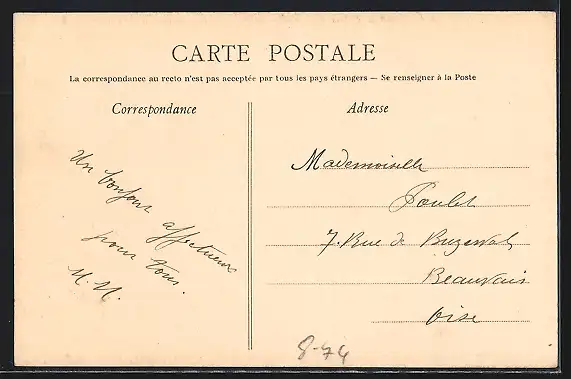 CARTE POSTALE
La correspondance au recto n'est pas acceptée par tous les pays étrangers — Se renseigner à la Poste
Correspondance
Adresse
Un bonjour
affectueux
pour tous.
M. M.
Mademoiselle
Poulet
7. Rue de Buzenval
Beauvais
Oise
8-74